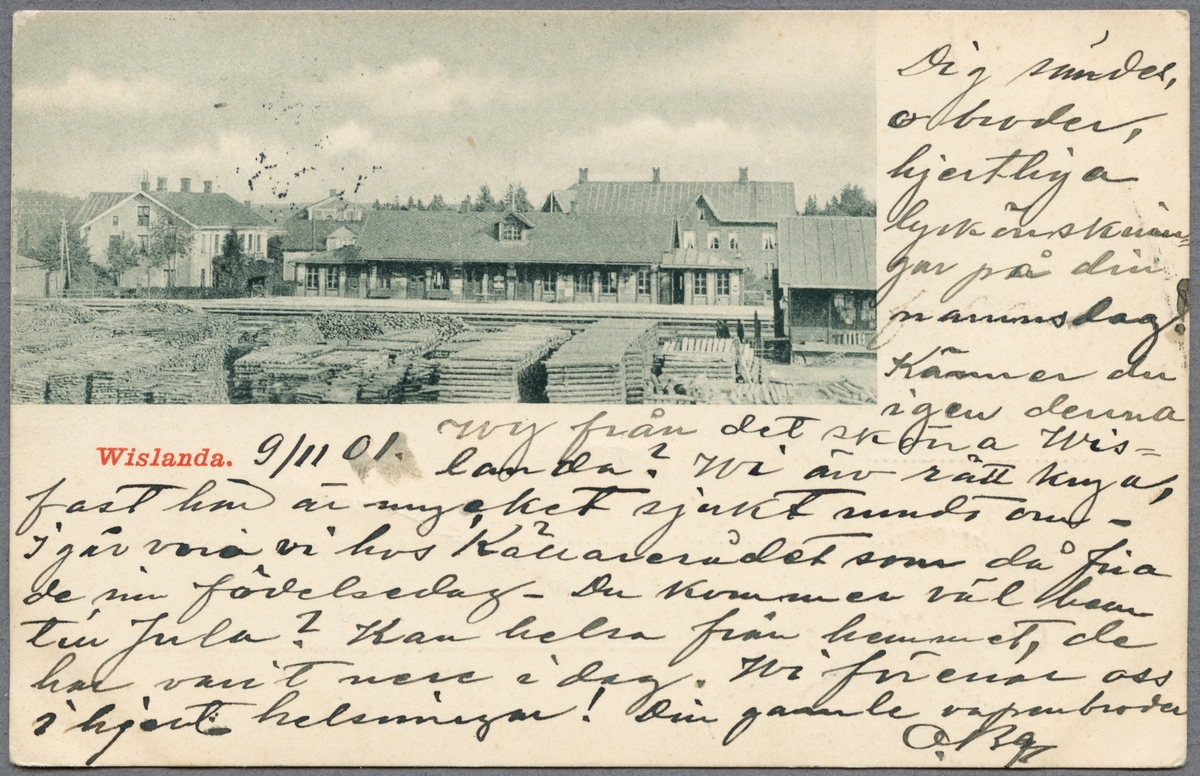 Dig sändes,
o broder,
hjertliga
lyckönsknin-
gar på din
namnsdag.
Känner du
igen denna
Wy från det sköna Wis-
Wislanda. 9/11 01.
landa? Wi äro rätt krya,
fast här är mycket sjukt rundt om -
Igår voro vi hos Källarerådet som då fira
de sin födelsedag - Du kommer väl hem
till Jula? Kan helsa från hemmet, de
har varit nere i dag. Wi förenar oss
i hjertl helsningar! Din gamle vapenbroder